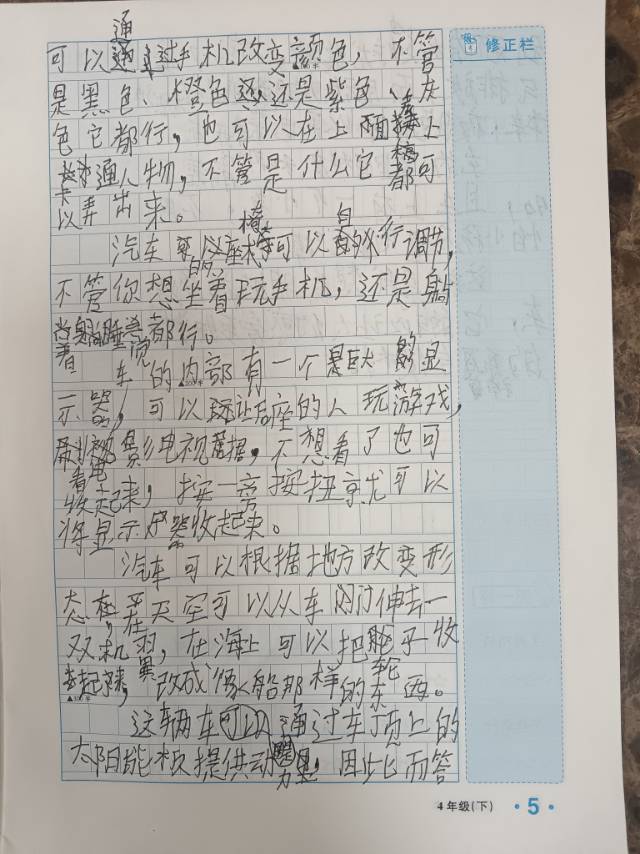 修正栏
可以通过手机改变颜色，不管
是黑色、橙色还是紫色、灰
色它都行，也可以在上面装上
卡通人物，不管是什么它都可
以弄出来。
汽车的座椅可以自行调节，
不管你想坐着玩手机，还是躺
着睡觉都行。
车的内部有一个巨大的显
示器，可以让后座的人玩游戏，
看电视，不想看了也可
收起来，按一旁按扭京尤可以
将显示器收起来。
汽车可以根据地方改变形
态，在天空可以从车门伸去一
双机翼，在海上可以把轮子收
起来，改成像船那样的东西。
这辆车可以通过车顶上的
太阳能板提供动力，因此而答
4年级(下) ·5·